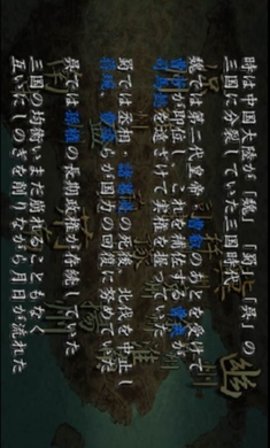 時は中国大陸が「魏」「蜀」「呉」の
三国に分裂していた三国時代
魏では第二代皇帝・曹叡のあとを受けて
曹芳が即位し、これを補佐する曹爽が
司馬懿を遠ざけて実権を握っていた
蜀では丞相・諸葛亮の死後、北伐を中止し
蒋琬、費禕らが国力の回復に努めていた
呉では孫権の長期政権が存続していた
三国の均衡いまだ崩れることもなく
互いにしのぎを削りながら月日が流れた
幽
州